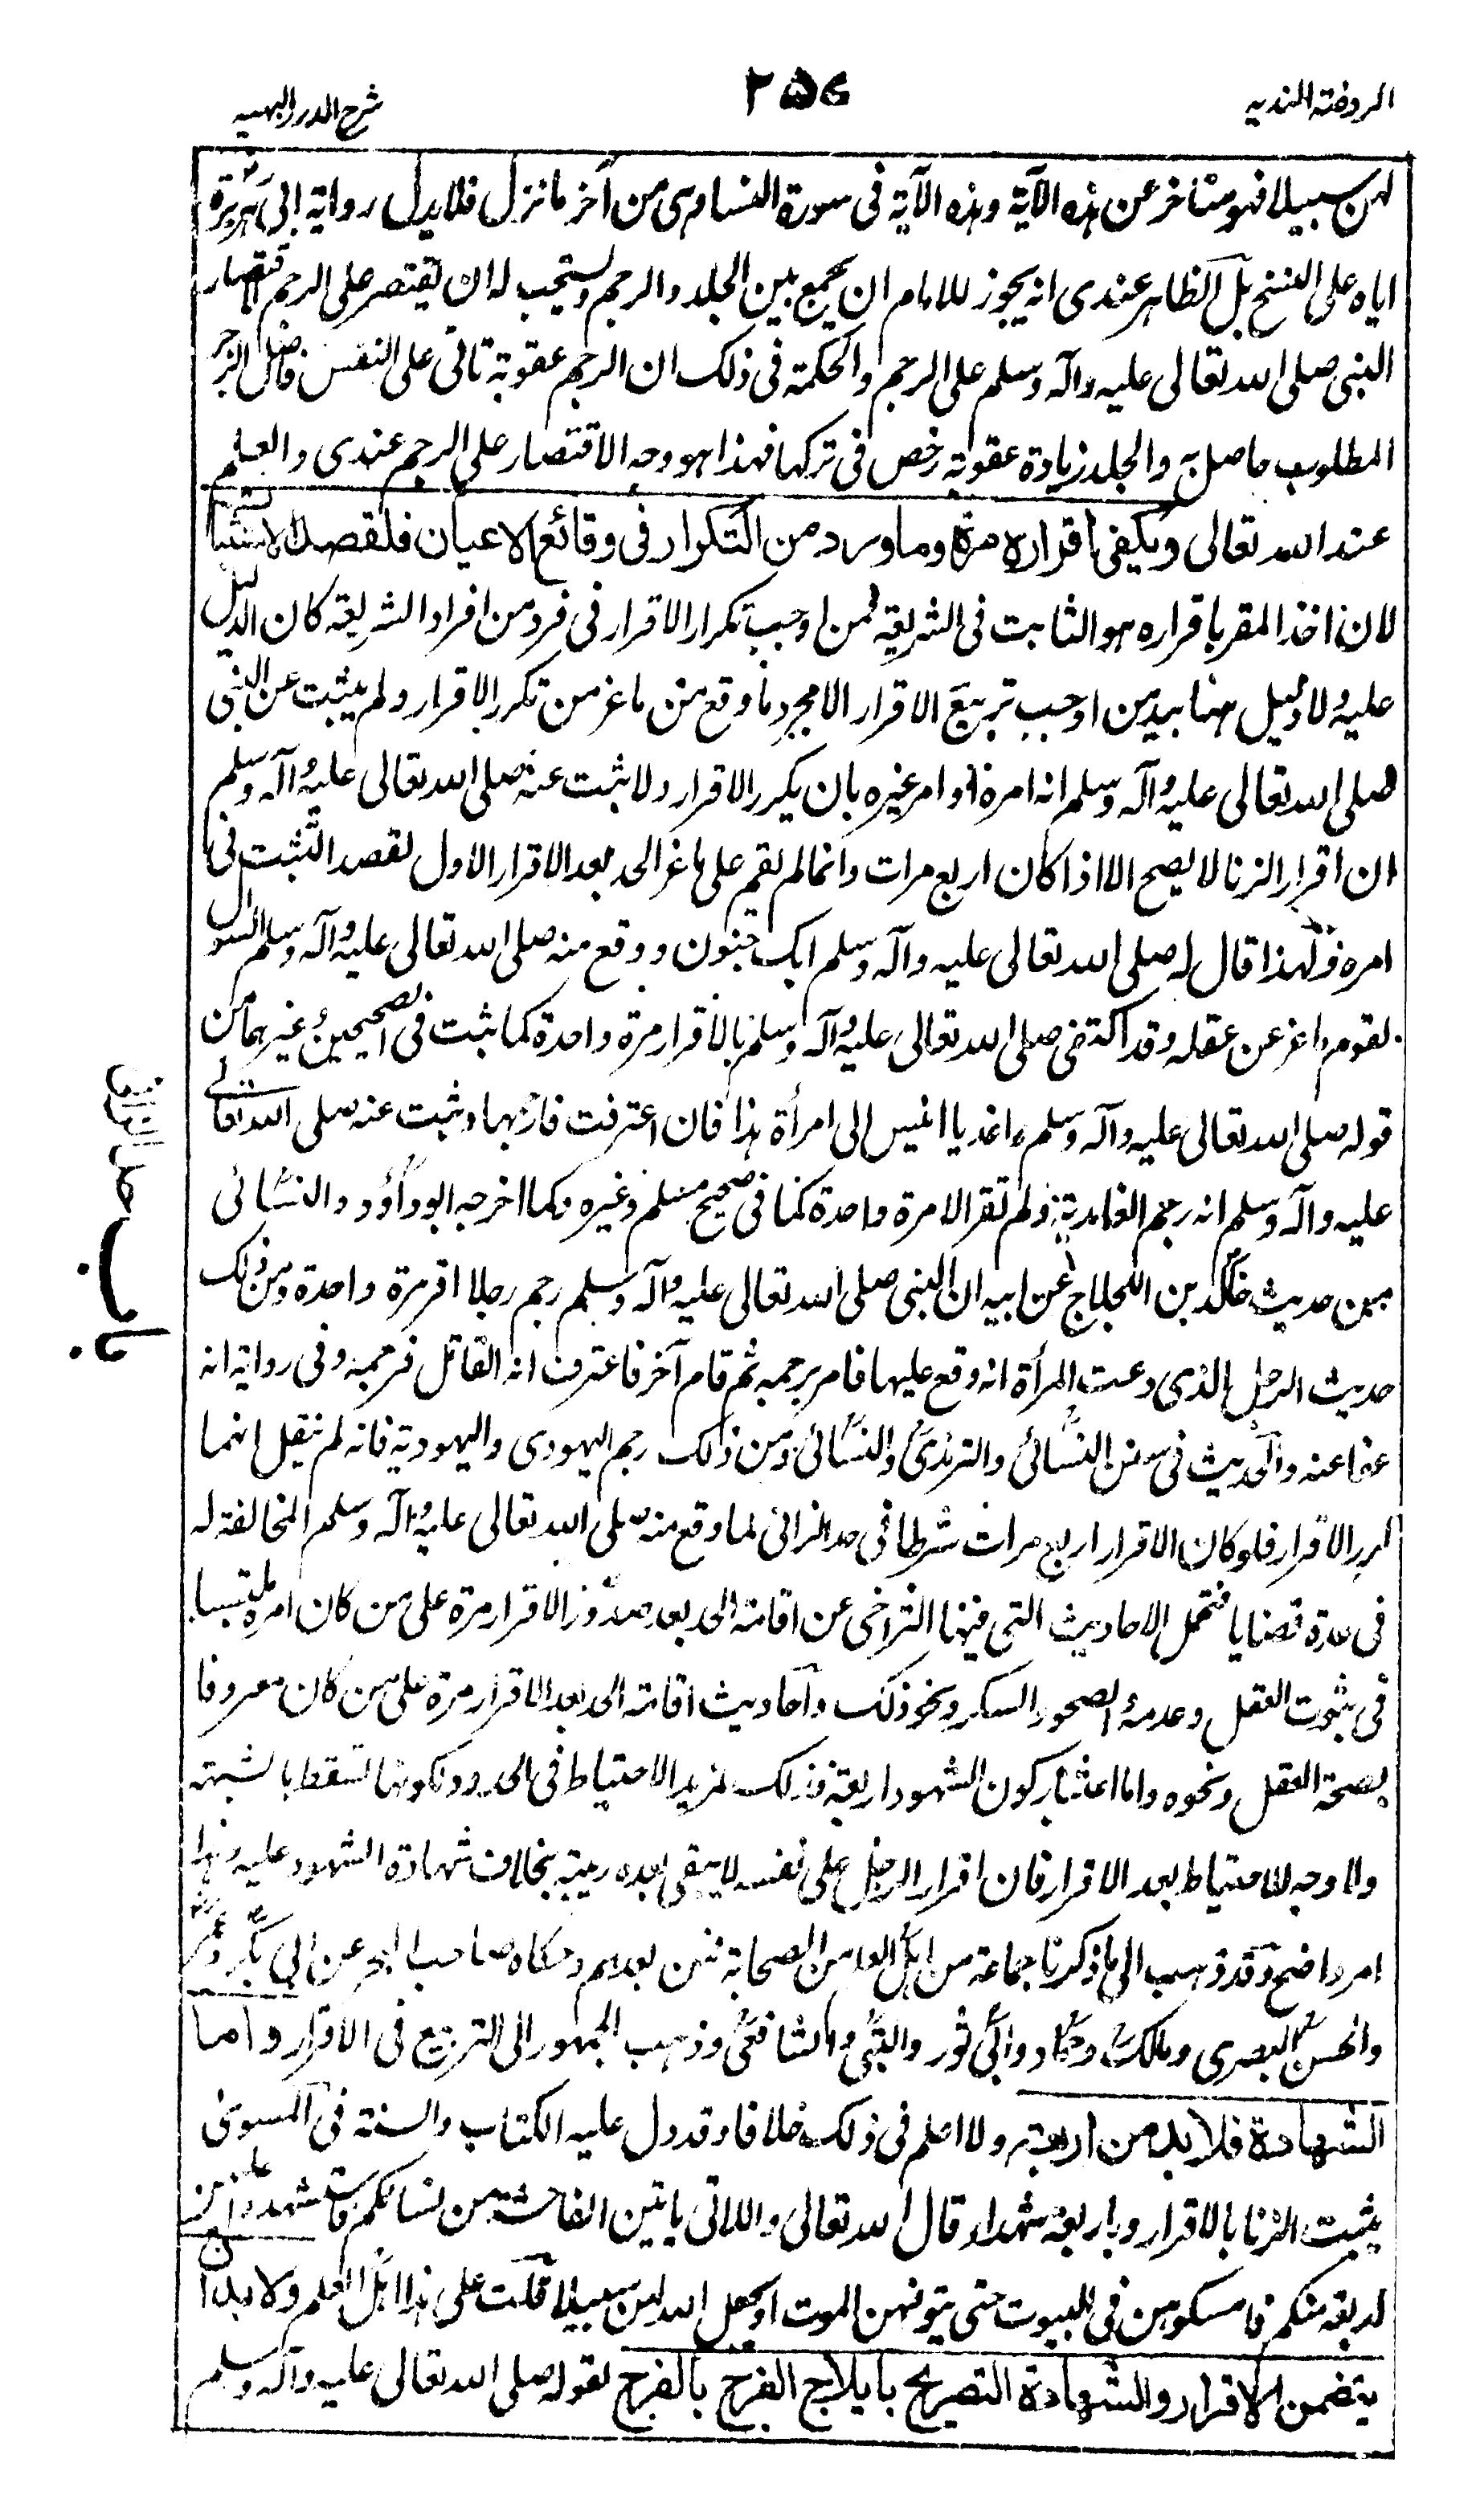 الروضة الندية
٢٥٦
شرح الدرر البهية
لهن سبيلا فهو متأخر عن هذه الآية وهذه الآية فى سورة النساء وهى من آخر ما نزل فلا يدل رواية ابى هريرة
اياه على النسخ بل الظاهر عندى انه يجوز للامام ان يجمع بين الجلد والرجم ويستحب له ان يقتصر على الرجم لاقتصار
النبى صلى الله تعالى عليه وآله وسلم على الرجم والحكمة فى ذلك ان الرجم عقوبة تاتى على النفس فاصل الزجر
المطلوب حاصل به والجلد زيادة عقوبة رخص فى تركها فهذا هو وجه الاقتصار على الرجم عندى والعلم
عند الله تعالى ويكفى اقراره مرة وما ورد من التكرار فى وقائع الاعيان فلقصد الاستثبات
لان اخذ المقر باقراره هو الثابت فى الشريعة فمن اوجب تكرار الاقرار فى فرد من افراد الشريعة كان الدليل
عليه ولا دليل هنا بيد من اوجب تربيع الاقرار الا مجرد ما وقع من ماعز من تكرر الاقرار ولم يثبت عن النبى
صلى الله تعالى عليه وآله وسلم انه امره او امر غيره بان يكرر الاقرار ولا ثبت عنه صلى الله تعالى عليه وآله وسلم
ان اقرار الزنا لا يصح الا اذا كان اربع مرات وانما لم يقم على ماعز الحد بعد الاقرار الاول لقصد التثبت فى
امره ولهذا قال له صلى الله تعالى عليه وآله وسلم ابك جنون ووقع منه صلى الله تعالى عليه وآله وسلم السوال
لقوم ماعز عن عقله وقد اكتفى صلى الله تعالى عليه وآله وسلم بالاقرار مرة واحدة كما ثبت فى الصحيحين وغيرهما من
قوله صلى الله تعالى عليه وآله وسلم واغد يا انيس الى امرأة هذا فان اعترفت فارجمها وثبت عنه صلى الله تعالى
عليه وآله وسلم انه رجم الغامدية ولم تقر الا مرة واحدة كما فى صحيح مسلم وغيره وكما اخرجه ابو داؤد والنسائى
من حديث خالد بن اللجلاج عن ابيه ان النبى صلى الله تعالى عليه وآله وسلم رجم رجلا اقر مرة واحدة ومن ذلك
حديث الرجل الذى دعت المرأة انه وقع عليها فامر برجمه ثم قام آخر فاعترف انه الفاعل فرجمه وفى رواية انه
عفا عنه والحديث فى سنن النسائى والترمذى والنسائى ومن ذلك رجم اليهودى واليهودية فانه لم ينقل انهما
كررا الاقرار فلو كان الاقرار اربع مرات شرطا فى حد الزانى لما وقع منه صلى الله تعالى عليه وآله وسلم المخالفة له
فى عدة قضايا فتحمل الاحاديث التى فيها التراخى عن اقامة الحد بعد صدور الاقرار مرة على من كان امره ملتبسا
فى ثبوت العقل وعدمه والصحو والسكر ونحو ذلك واحاديث اقامة الحد بعد الاقرار مرة على من كان معروفا
بصحة العقل ونحوه واما اعتبار كون الشهود اربعة فذلك لمزيد الاحتياط فى الحدود لكونها تسقط بالشبهة
ولا وجه للاحتياط بعد الاقرار فان اقرار الرجل على نفسه لا يبقى بعده ريبة بخلاف شهادة الشهود عليه وهذا
امر واضح وقد ذهب الى ما ذكرنا جماعة من اهل العلم من الصحابة فمن بعدهم وحكاه صاحب البحر عن ابى بكر وعمر
والحسن البصرى ومالك وحماد وابى ثور والبتى والشافعى وذهب الجمهور الى التربيع فى الاقرار واما
الشهادة فلا بد من اربعة ولا اعلم فى ذلك خلافا وقد دل عليه الكتاب والسنة فى المسوى
يثبت الزنا بالاقرار وباربعة شهداء قال الله تعالى واللاتى ياتين الفاحشة من نسائكم فاستشهدوا عليهن
اربعة منكم فامسكوهن فى البيوت حتى يتوفهن الموت او يجعل الله لهن سبيلا قلت على هذا اهل العلم ولا بد ان
يتضمن الاقرار والشهادة التصريح بايلاج الفرج بالفرج لقوله صلى الله تعالى عليه وآله وسلم
باب حد الزانى